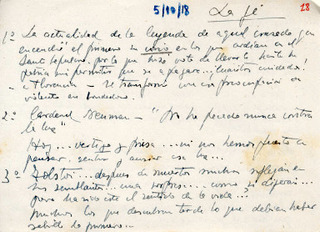 5/10/18 La fe 28
1º La actualidad de la leyenda de aquel cruzado, que
encendió el primero su cirio en los que ardían en el
Santo Sepulcro, por lo que hizo voto de llevarlo hasta su
patria sin permitir que se apagara... ¡Cuántos cuidados!
a Florencia – Se transformó
violenta en
2º Cardenal Newman – "No he pecado nunca contra
la luz"
Hoy... vértigo y prisa... ni nos hemos puesto a
pensar, sentir y
3º Tolstoi... después de muertos muchos reflejan en
sus semblantes... una sorpresa... como si dijeran...
pero ha sido este el sentido de la vida...?
muchos los que descubren tarde lo que debían haber
sabido de primero...